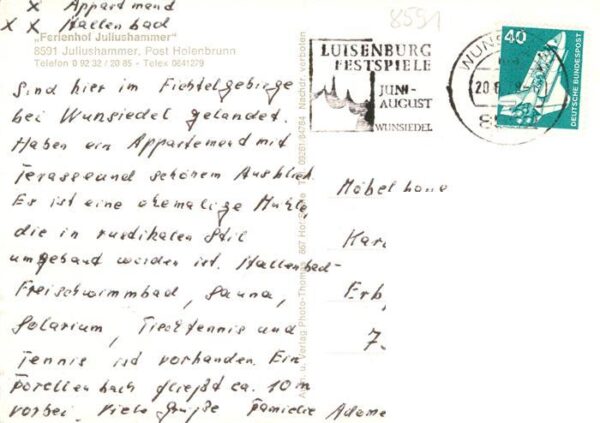 X Appartmand
X X Hallenbad
„Ferienhof Juliushammer“
8591 Juliushammer, Post Holenbrunn
Telefon 0 92 32 / 20 85 - Telex 0641279
Sind hier im Fichtelgebirge
bei Wunsiedel gelandet.
Haben ein Appartemend mit
Terasse und schönem Ausblick.
Es ist eine ehemalige Mühle,
die in rustikalen Stil
umgebaut worden ist. Hallenbad-
Freischwimmbad, Sauna,
Solarium, Tischtennis und
Tennis ist vorhanden. Ein
Forellenbach fließt ca. 10 m
vorbei. Viele Grüße Familie Adame
Verlag Photo-Thomas 867 Hof Tel. 09281/84764 Nachdr. verboten
8591
LUISENBURG
FESTSPIELE
JUNI-
AUGUST
WUNSIEDEL
WUNS
40
DEUTSCHE BUNDESPOST
Möbel
Kar
Erb
7.